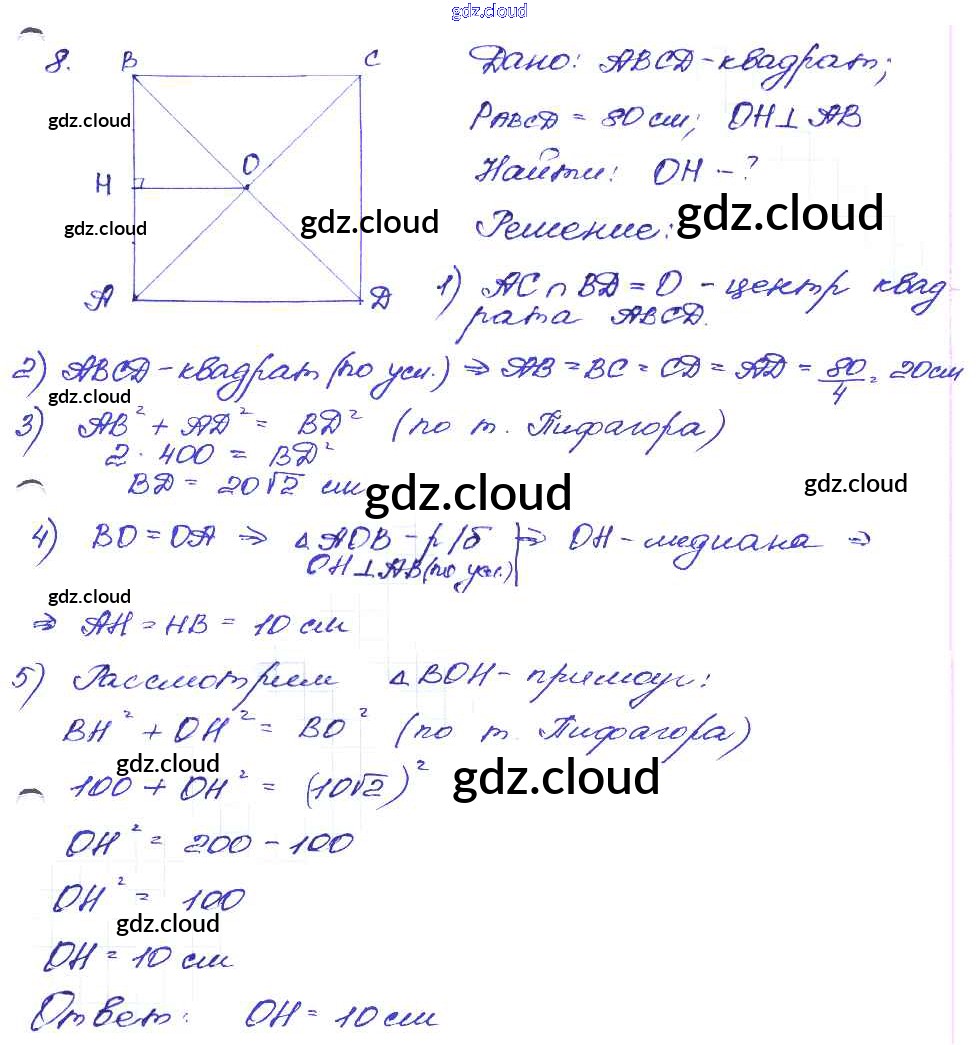 gdz.cloud
8. B C
gdz.cloud
O
H
gdz.cloud
gdz.cloud
A D
Дано: ABCD - квадрат;
P ABCD = 80 см; OH ⊥ AB
Найти: OH - ?
gdz.cloud
Решение:
1) AC ∩ BD = O - центр квад
рата ABCD.
2) ABCD - квадрат (по усл.) ⇒ AB = BC = CD = AD = 80/4 = 20 см
gdz.cloud
3) AB² + AD² = BD² (по т. Пифагора)
2 · 400 = BD²
BD = 20√2 см
gdz.cloud
gdz.cloud
4) BO = OA ⇒ △ AOB - р/б | ⇒ OH - медиана ⇒
OH ⊥ AB (по усл.)
gdz.cloud
⇒ AH = HB = 10 см
5) Рассмотрим △ BOH - прямоуг:
BH² + OH² = BO² (по т. Пифагора)
gdz.cloud
gdz.cloud
100 + OH² = (10√2)²
OH² = 200 - 100
OH² = 100
gdz.cloud
OH = 10 см
Ответ: OH = 10 см